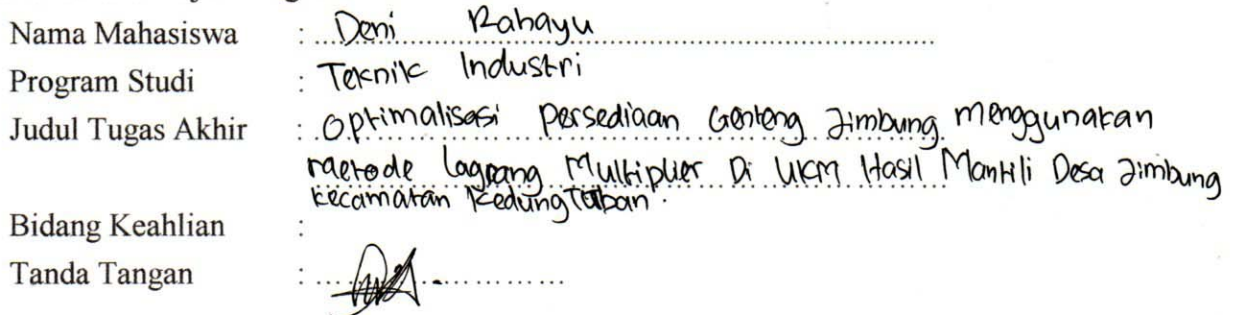 Nama Mahasiswa : Deni Rahayu
Program Studi : Teknik Industri
Judul Tugas Akhir : Optimalisasi Persediaan Genteng Jimbung menggunakan
metode Lagrang Multiplier Di UKM Hasil Mantili Desa Jimbung
Kecamatan Kedung Tuban.
Bidang Keahlian :
Tanda Tangan :